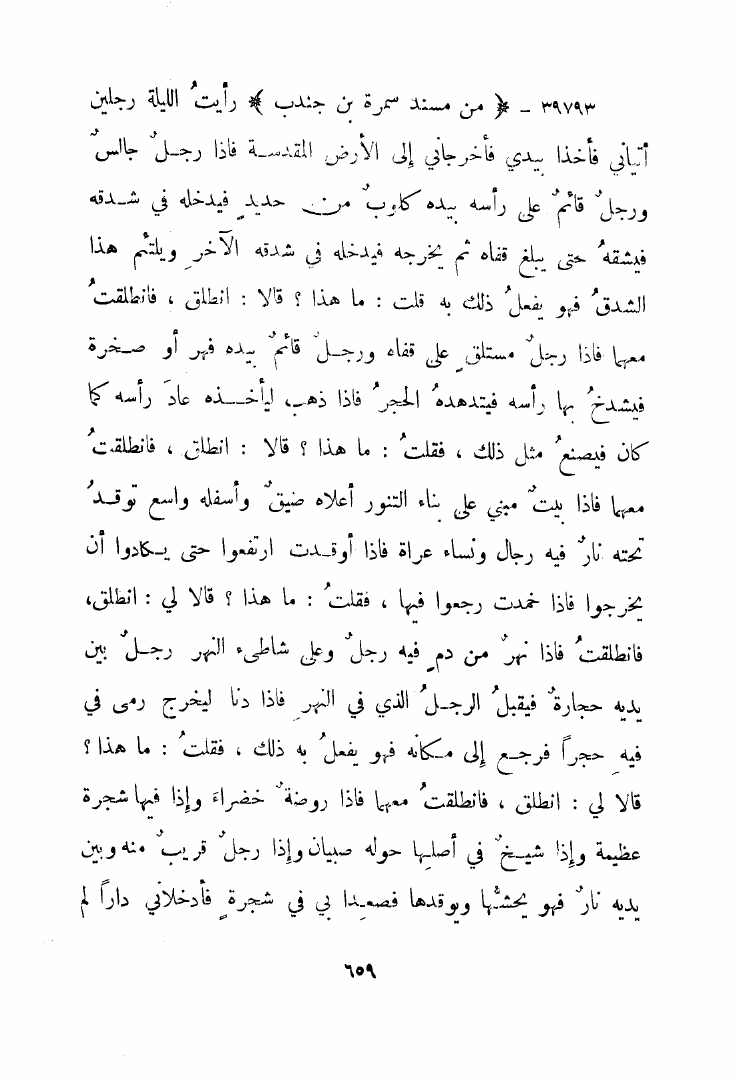 ٣٩٧٩٣ - ﴿ من مسند سمرة بن جندب ﴾ رأيتُ الليلة رجلين
أتياني فأخذا بيدي فأخرجاني إلى الأرض المقدسة فاذا رجلٌ جالسٌ
ورجلٌ قائمٌ على رأسه بيده كلوبٌ من حديدٍ فيدخله في شدقه
فيشقهُ حتى يبلغ قفاه ثم يخرجه فيدخله في شدقه الآخرِ ويلتئم هذا
الشدقُ فهو يفعلُ ذلك به قلت : ما هذا ؟ قالا : انطلق ، فانطلقتُ
معهما فاذا رجلٌ مستلقٍ على قفاه ورجلٌ قائمٌ بيده فهر أو صخرة
فيشدخُ بها رأسه فيتدهدهُ الحجرُ فاذا ذهب ليأخذه عادَ رأسه كما
كان فيصنعُ مثل ذلك ، فقلتُ : ما هذا ؟ قالا : انطلق ، فانطلقتُ
معهما فاذا بيتٌ مبني على بناء التنور أعلاه ضيقٌ وأسفله واسع توقدُ
تحته نارٌ فيه رجال ونساء عراة فاذا أوقدت ارتفعوا حتى يكادوا أن
يخرجوا فاذا خمدت رجعوا فيها ، فقلتُ : ما هذا ؟ قالا لي : انطلق،
فانطلقتُ فاذا نهرٌ من دمٍ فيه رجلٌ وعلى شاطىء النهر رجلٌ بين
يديه حجارةٌ فيقبلُ الرجلُ الذي في النهرِ فاذا دنا ليخرج رمى في
فيهِ حجراً فرجع إلى مكانه فهو يفعلُ به ذلك ، فقلتُ : ما هذا ؟
قالا لي : انطلق ، فانطلقتُ معهما فاذا روضةٌ خضراءَ وإذا فيها شجرة
عظيمة وإذا شيخٌ في أصلها حوله صبيان وإذا رجلٌ قريبٌ منه وبين
يديه نارٌ فهو يحشُّها ويوقدها فصعدا بي في شجرةٍ فأدخلاني داراً لم
٦٥٩